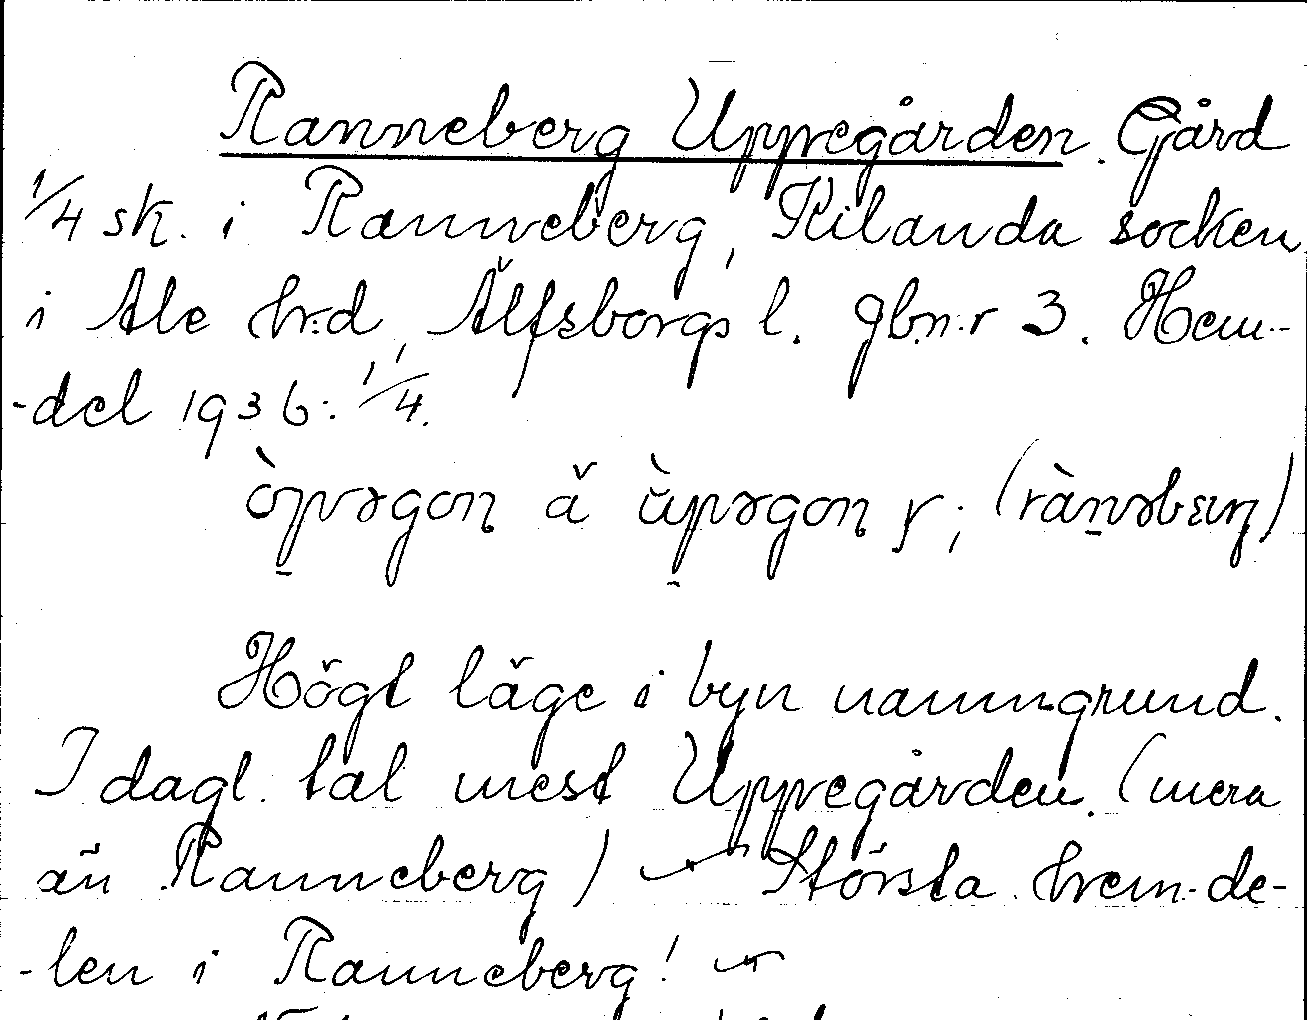 Ranneberg Uppegården. Gård
1/4 sk. i Ranneberg, Kilanda socken
i Ale hrd, Älfsborgs l. gbn.r 3. Hem-
-del 1936: 1/4.
òpəgon ä ùpəgon r; (rànəbærg)
Högt läge i byn namngrund.
I dagl. tal mest Uppegården. (mera
än Ranneberg) Största hem-de-
-len i Ranneberg!